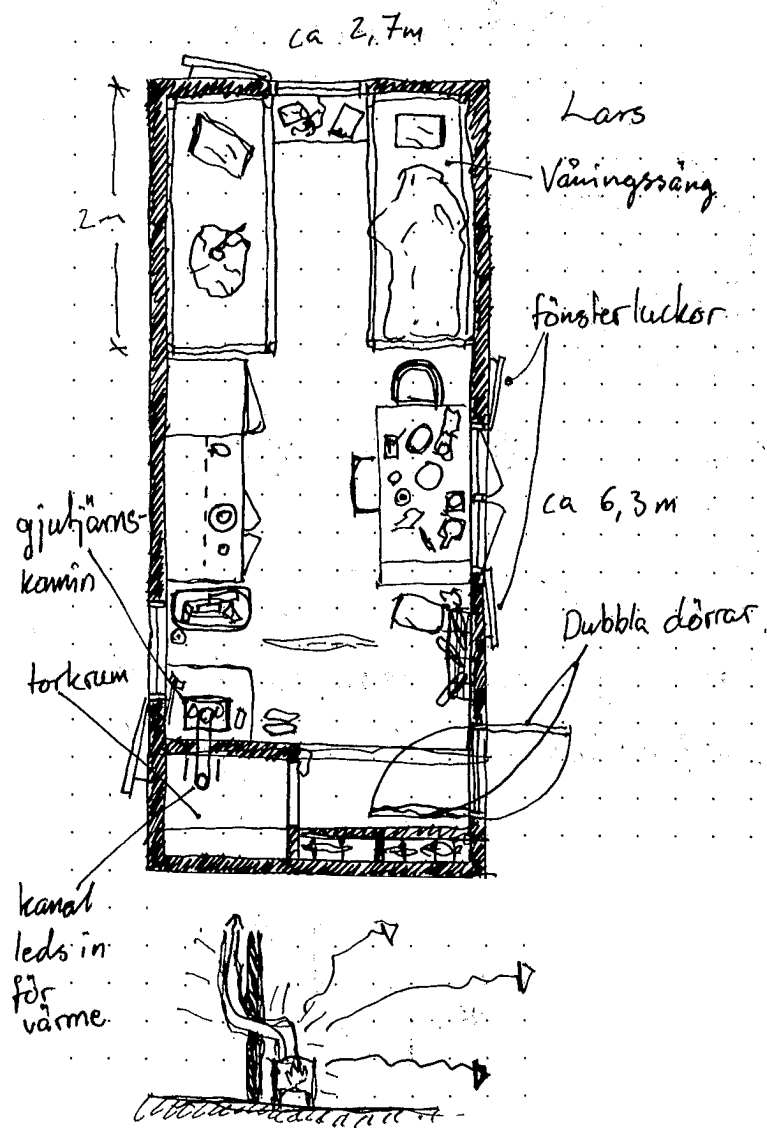 ca 2,7m
Lars
Våningssäng
2m
fönsterluckor
ca 6,3m
gjutjärns-
kamin
Dubbla dörrar
torkrum
kanal
leds in
för
värme